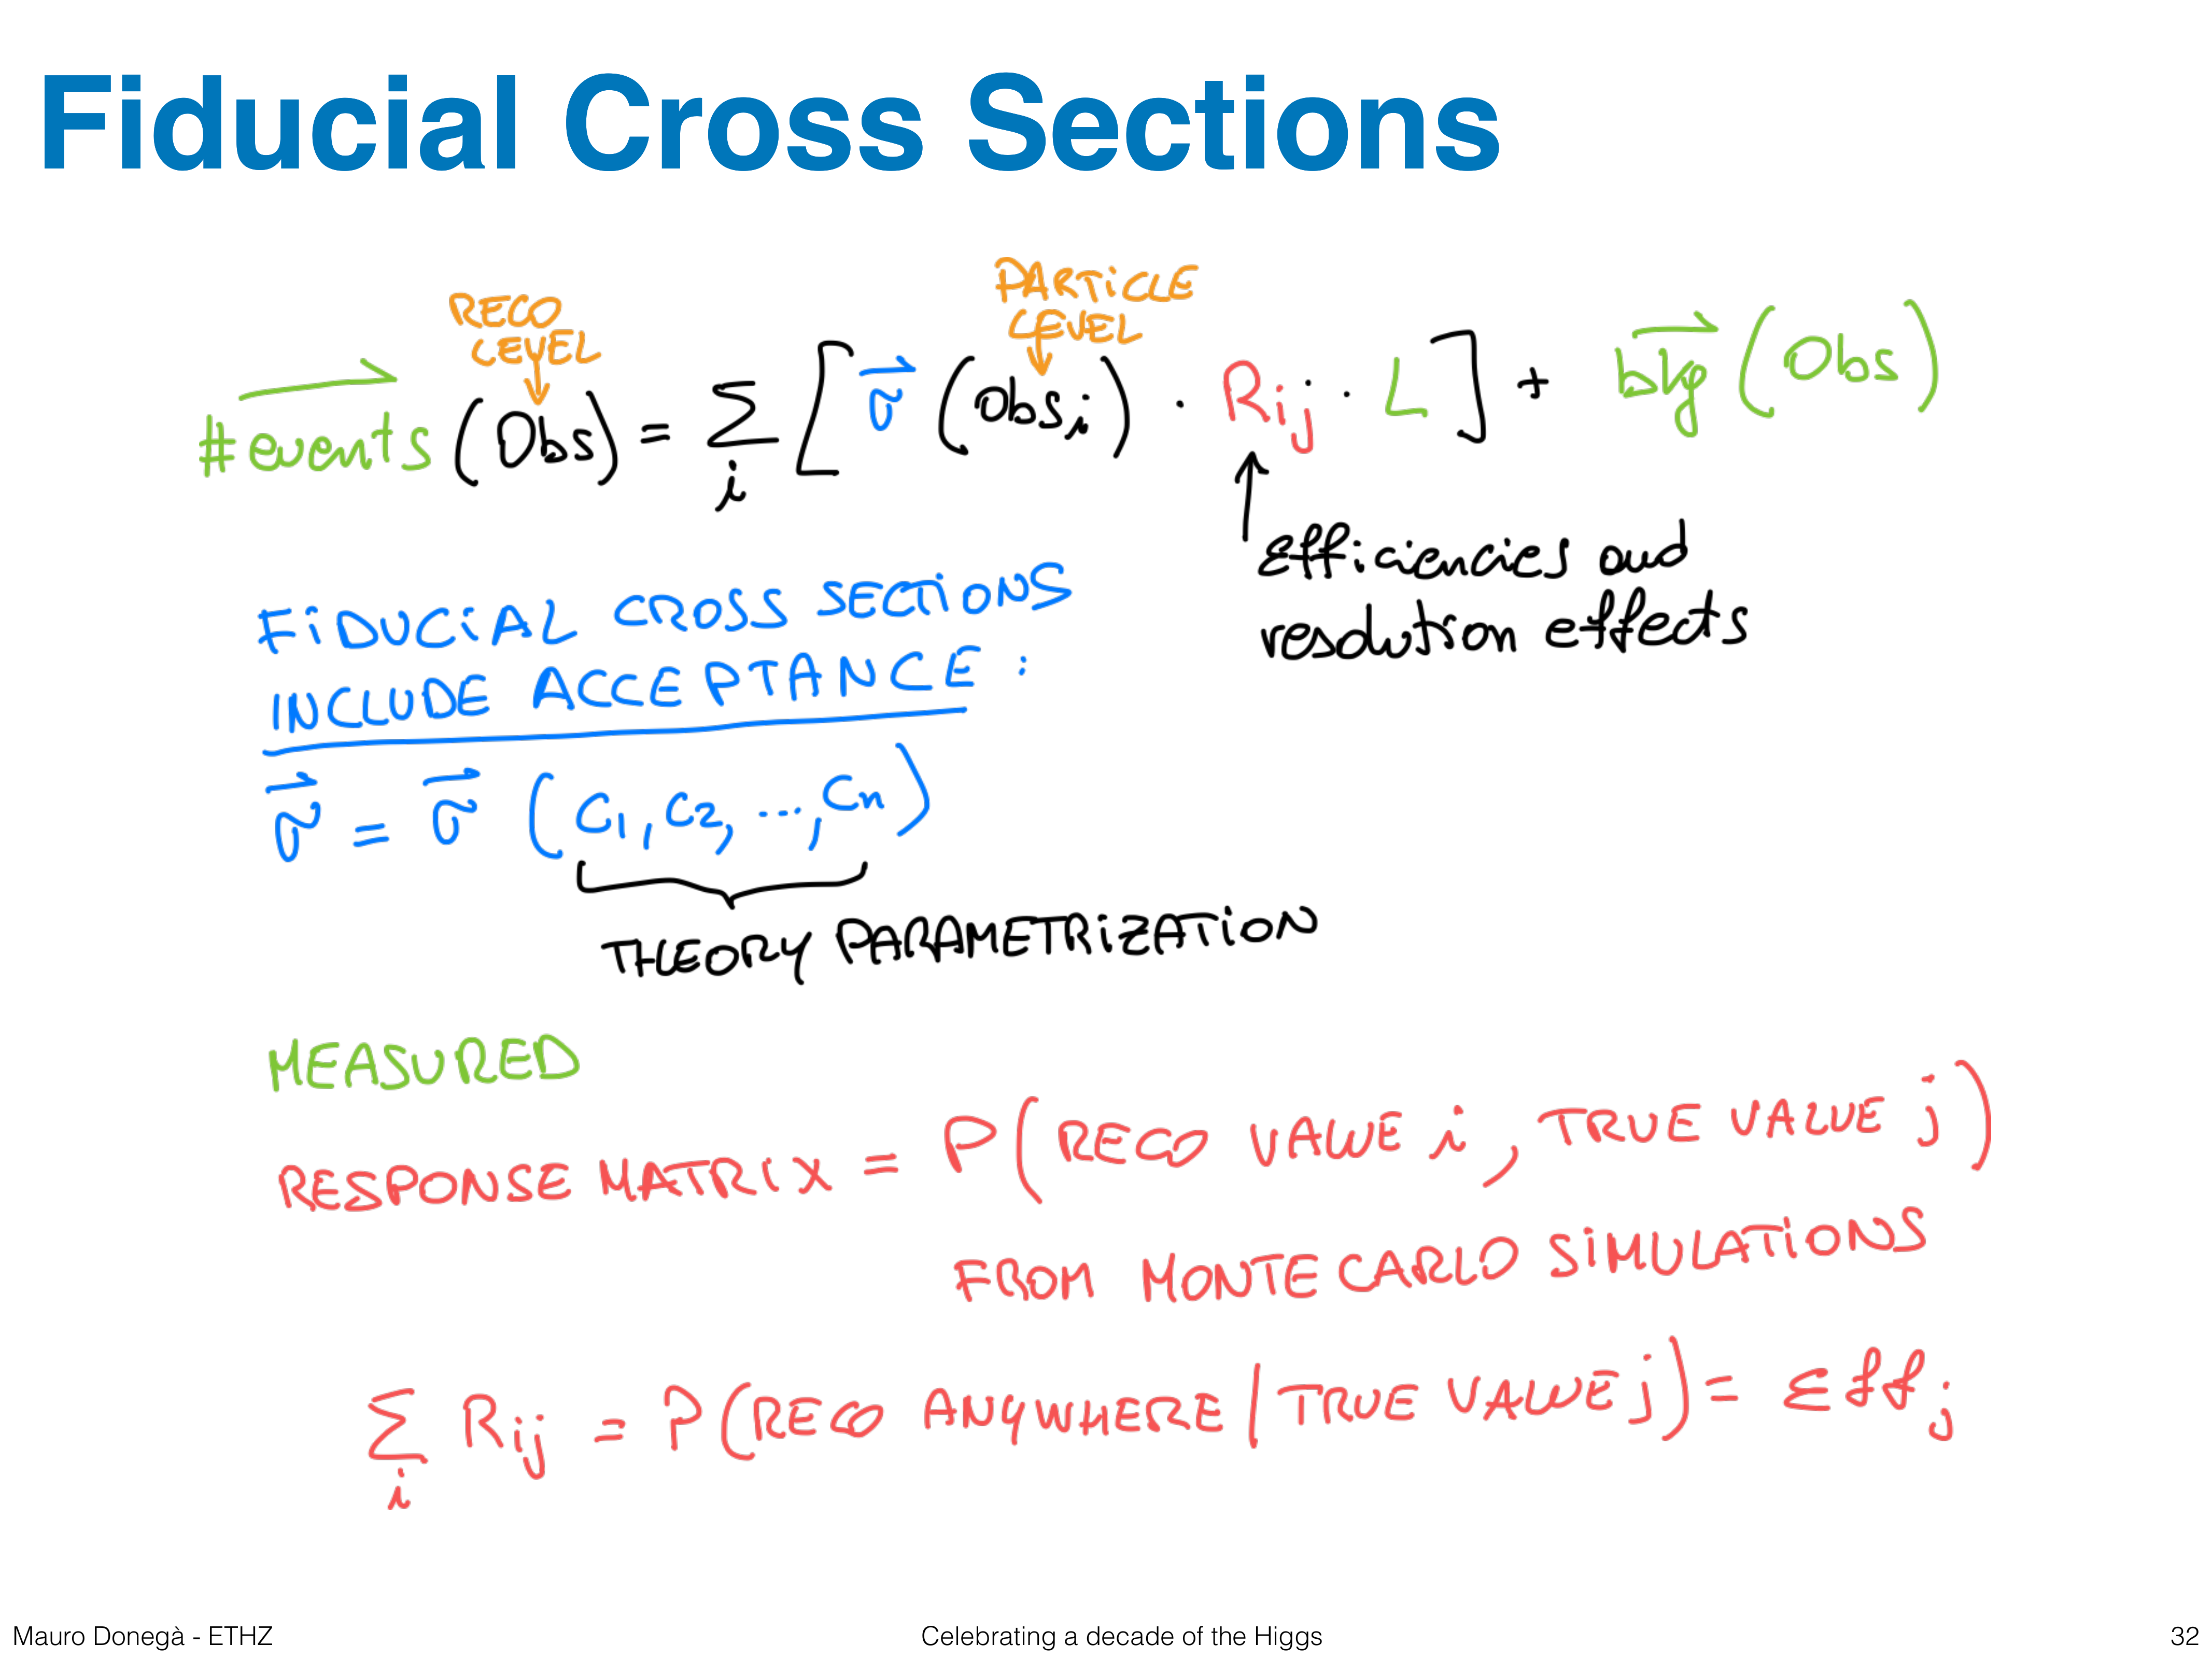 Fiducial Cross Sections
RECO LEVEL
PARTICLE LEVEL
#events (Obs) = Σ_i [ σ⃗ (Obs_i) · Rij · L ] + bkg (Obs)
Efficiencies and
resolution effects
FIDUCIAL CROSS SECTIONS
INCLUDE ACCEPTANCE :
σ⃗ = σ⃗ (C1, C2, ..., Cn)
THEORY PARAMETRIZATION
MEASURED
RESPONSE MATRIX = P(RECO VALUE i, TRUE VALUE j)
FROM MONTECARLO SIMULATIONS
Σ_i Rij = P(RECO ANYWHERE | TRUE VALUE j) = Eff_j
Mauro Donegà - ETHZ
Celebrating a decade of the Higgs
32